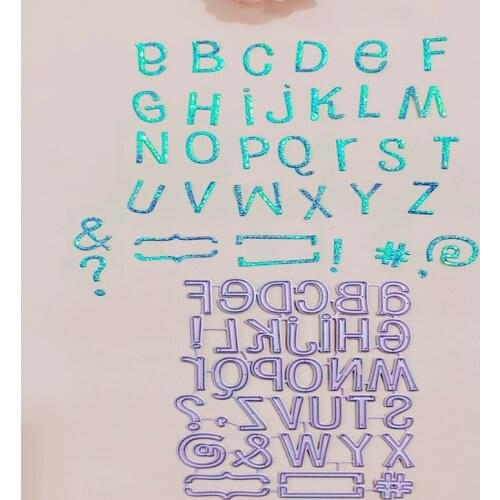 a B C D e F
G H i j K L M
N O P Q r S T
U V W X Y Z
& { } [ ] ! # . @
? ,
a B C D e F
G H i j K L !
M N O P Q r
S T U V Z , . ?
X Y W & @
# [ ] { }